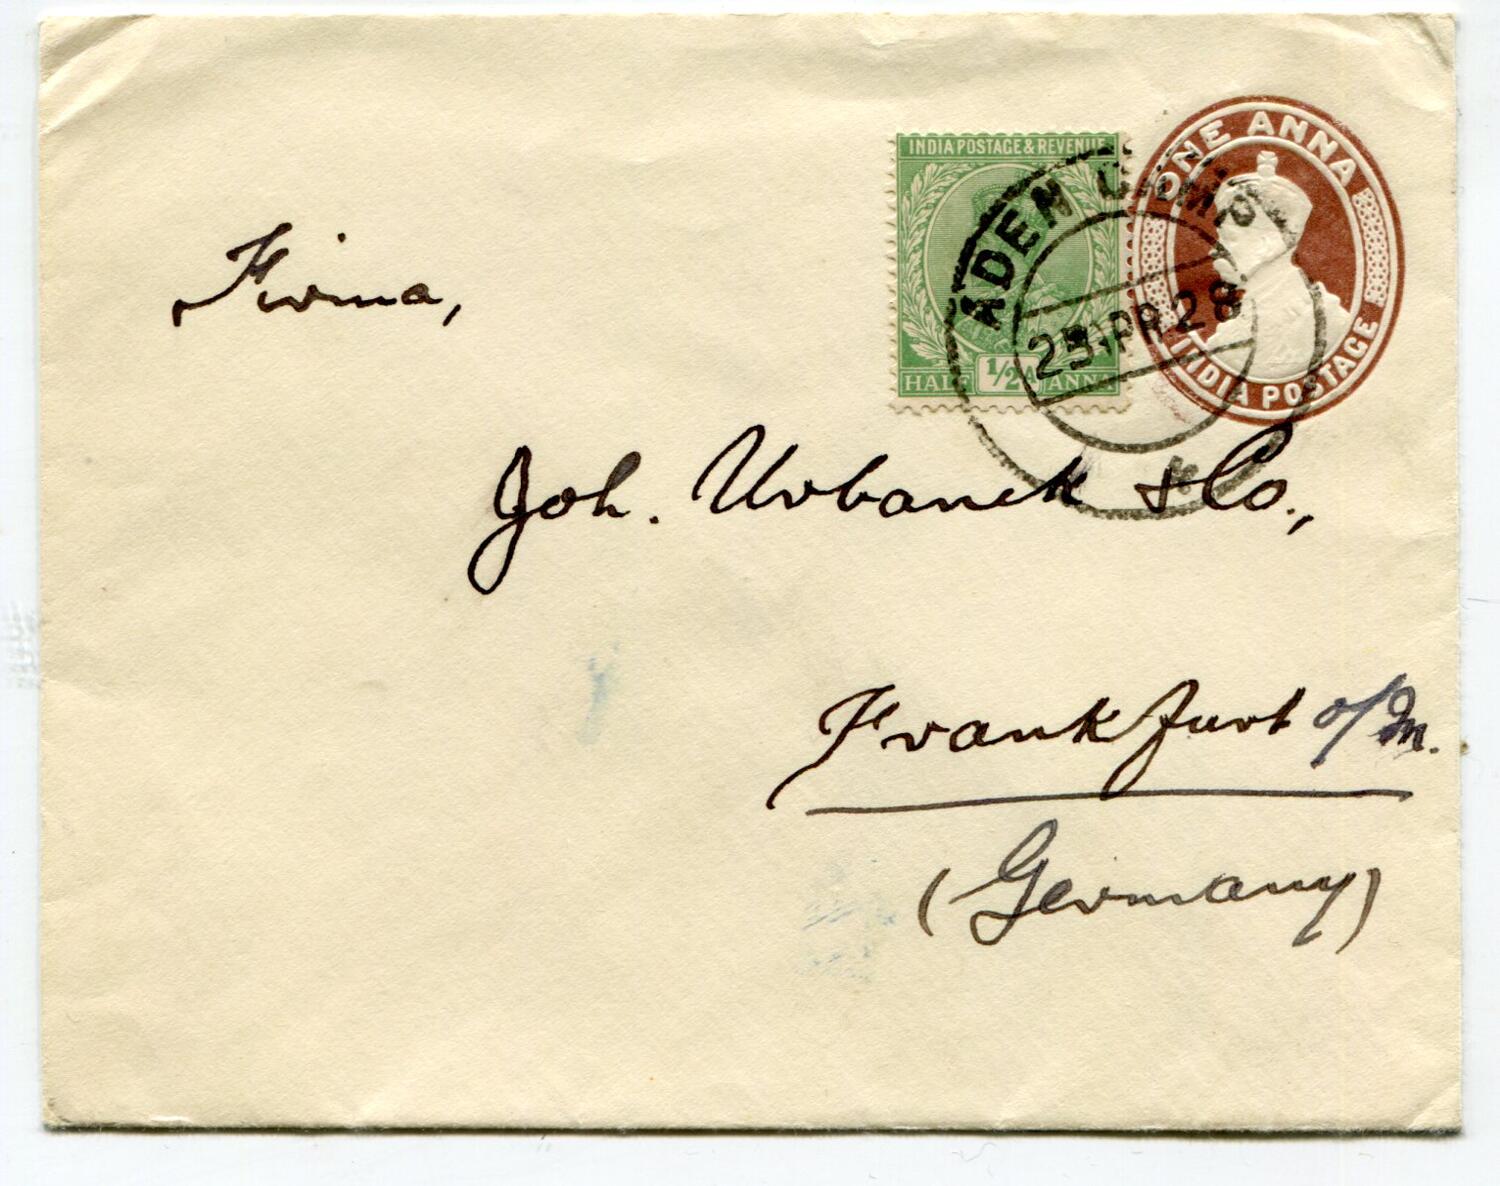 INDIA POSTAGE & REVENUE
HALF 1/2 A ANNA
ONE ANNA
INDIA POSTAGE
ADEN CAMP
25 APR 28
Firma,
Joh. Urbanek & Co.,
Frankfurt o/M.
(Germany)